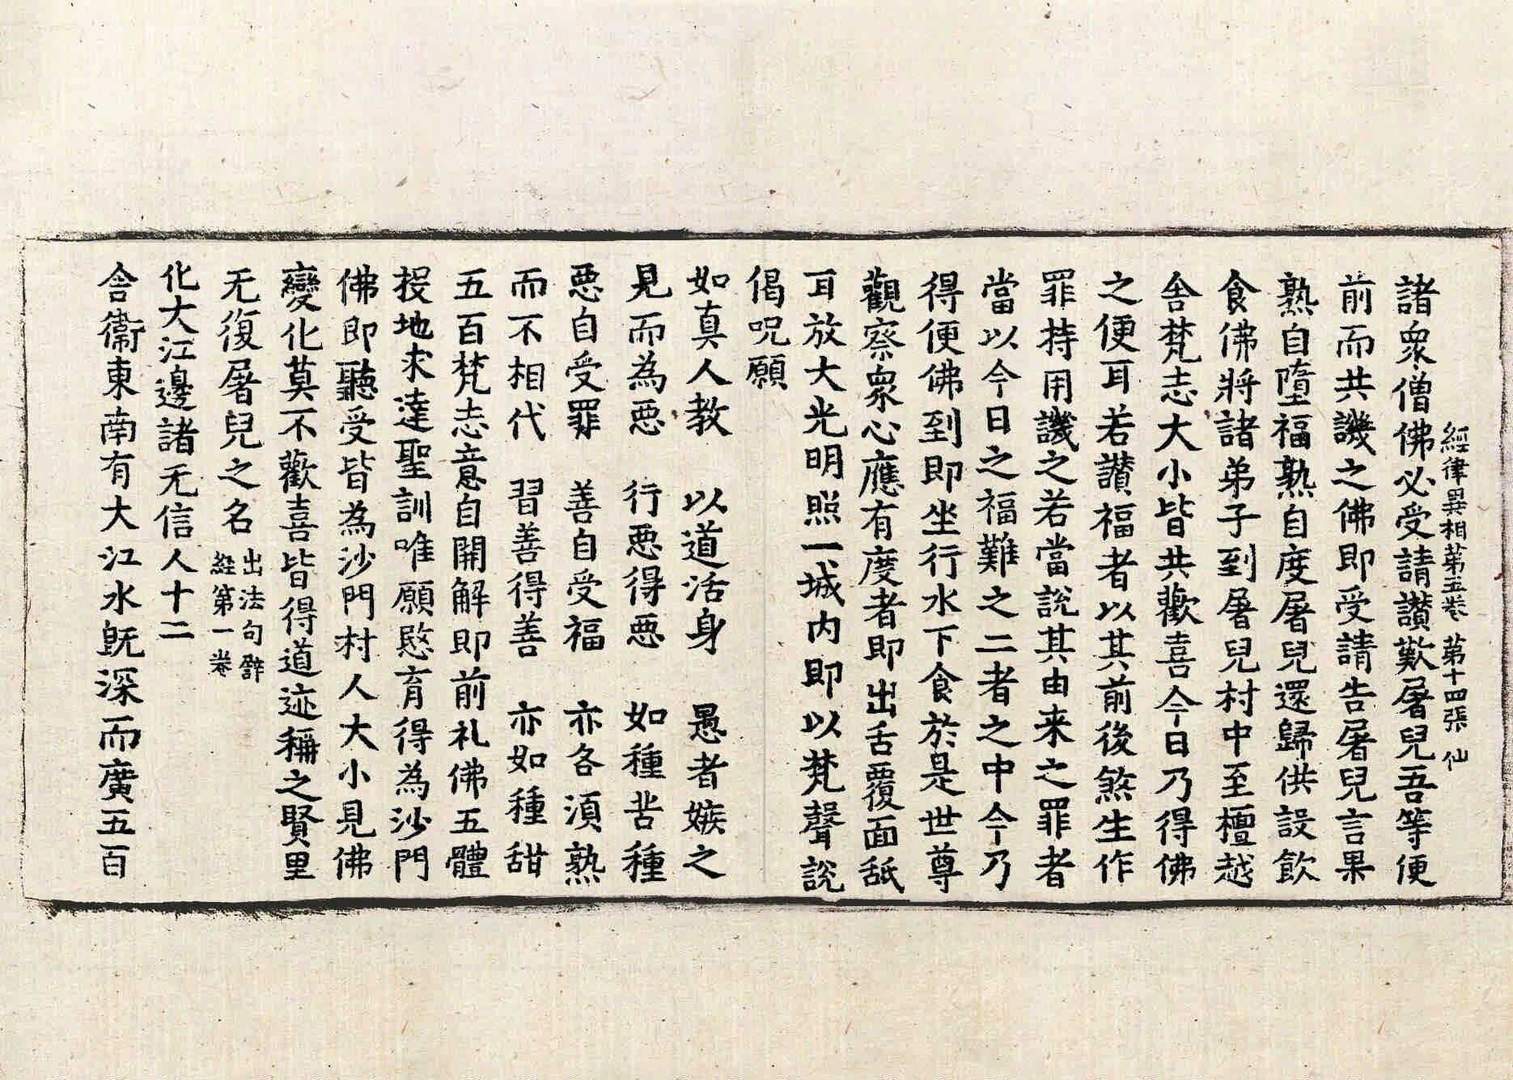 經律異相第五卷 第十四張 仙
諸衆僧佛必受請讃歎屠兒吾等便
前而共譏之佛即受請告屠兒言果
熟自墮福熟自度屠兒還歸供設飲
食佛將諸弟子到屠兒村中至檀越
舎梵志大小皆共歡喜今日乃得佛
之便耳若讃福者以其前後煞生作
罪持用譏之若當說其由来之罪者
當以今日之福難之二者之中今乃
得便佛到即坐行水下食於是世尊
觀察衆心應有度者即出舌覆面舐
耳放大光明照一城内即以梵聲說
偈呪願
如真人教 以道活身 愚者嫉之
見而為惡 行惡得惡 如種苦種
惡自受罪 善自受福 亦各湏熟
而不相代 習善得善 亦如種甜
五百梵志意自開解即前礼佛五體
投地求達聖訓唯願愍育得為沙門
佛即聽受皆為沙門村人大小見佛
變化莫不歡喜皆得道迹稱之賢里
无復屠兒之名 出法句辟
經第一卷
化大江邊諸无信人十二
舎衞東南有大江水旣深而廣五百